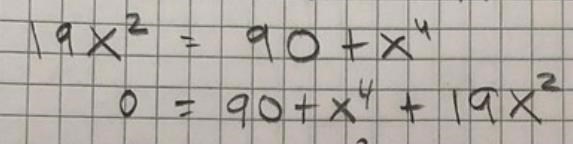 19x² = 90 + x⁴
0 = 90 + x⁴ + 19x²